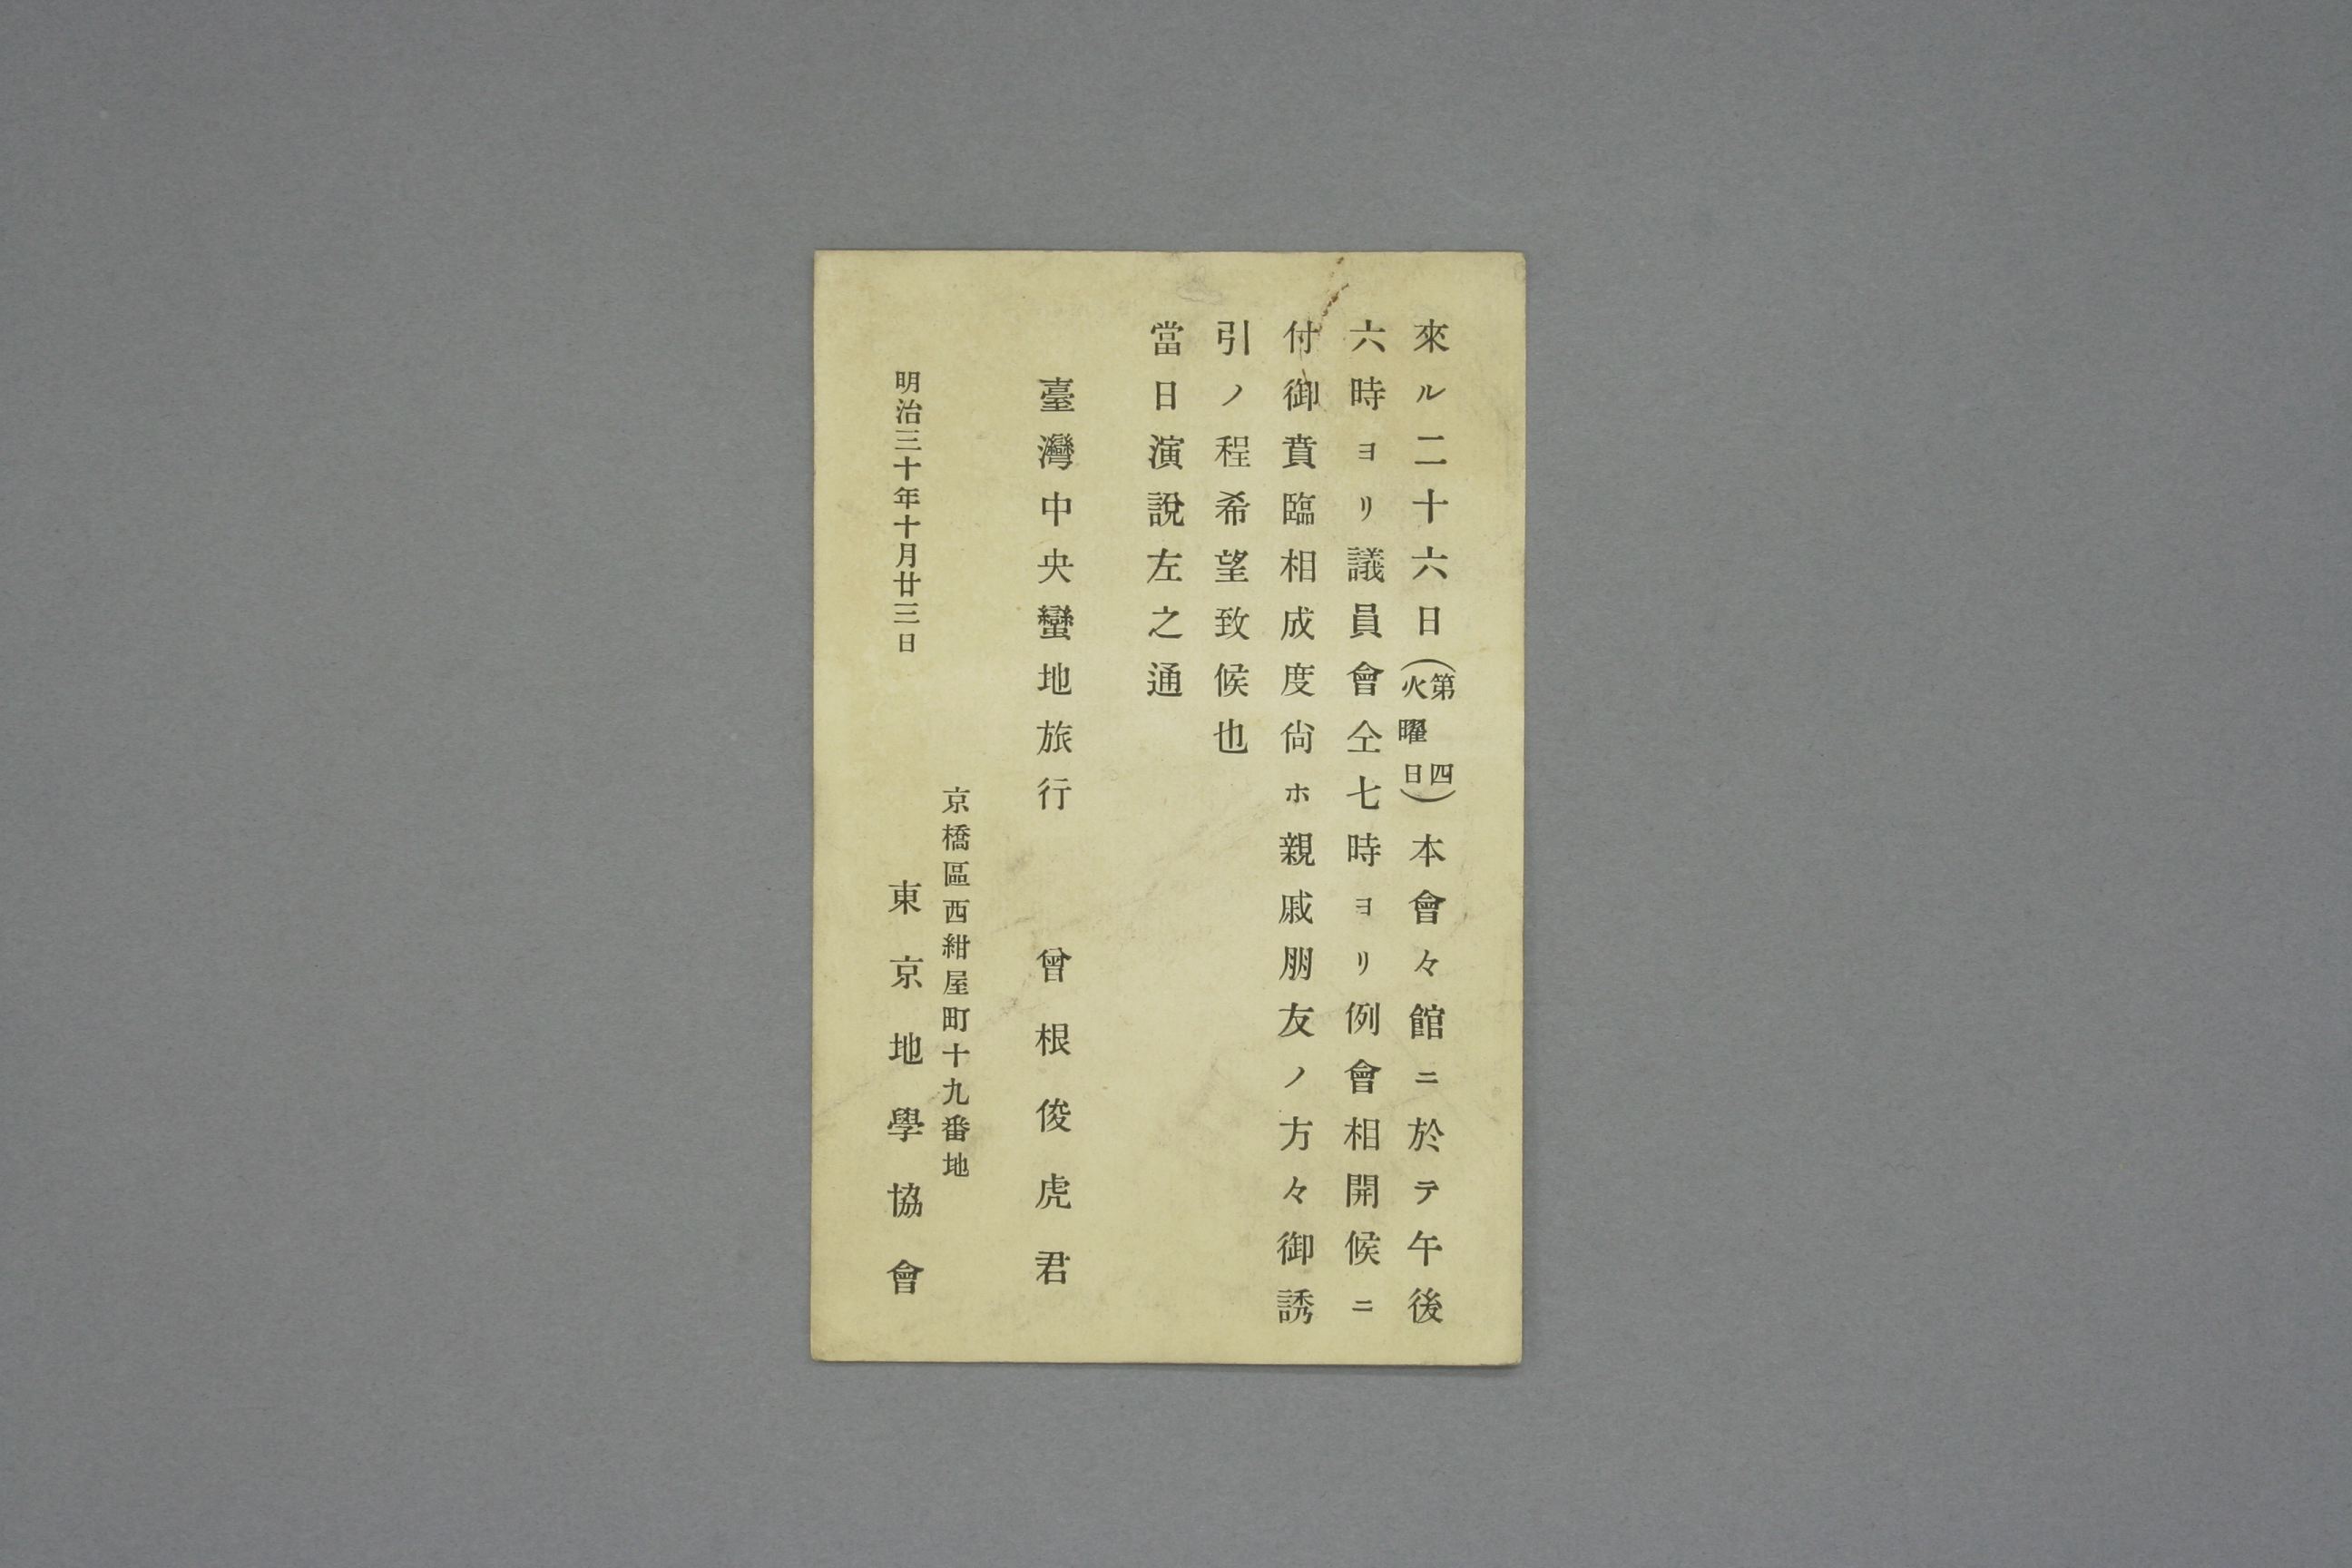 來ル二十六日(第四火曜日)本會々館ニ於テ午後
六時ヨリ議員會仝七時ヨリ例會相開候ニ
付御賁臨相成度尙ホ親戚朋友ノ方々御誘
引ノ程希望致候也
當日演說左之通
臺灣中央蠻地旅行 曾根俊虎君
京橋區西紺屋町十九番地
明治三十年十月廿三日 東京地學協會